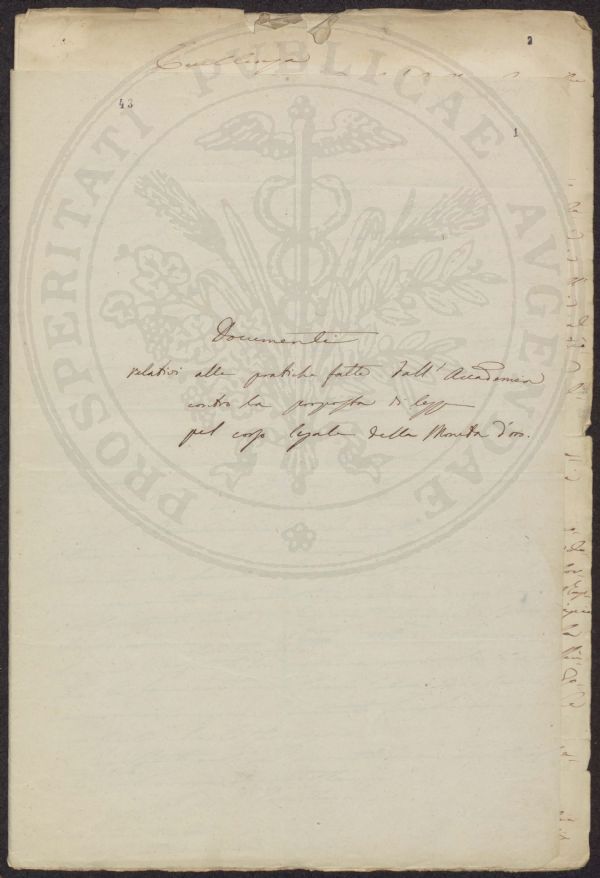 2
43
1
PROSPERITATI PUBLICAE AVGENDAE
Documenti
relativi alle pratiche fatte dall'Accademia
contro la proposta di legge
pel corso legale della Moneta d'oro.